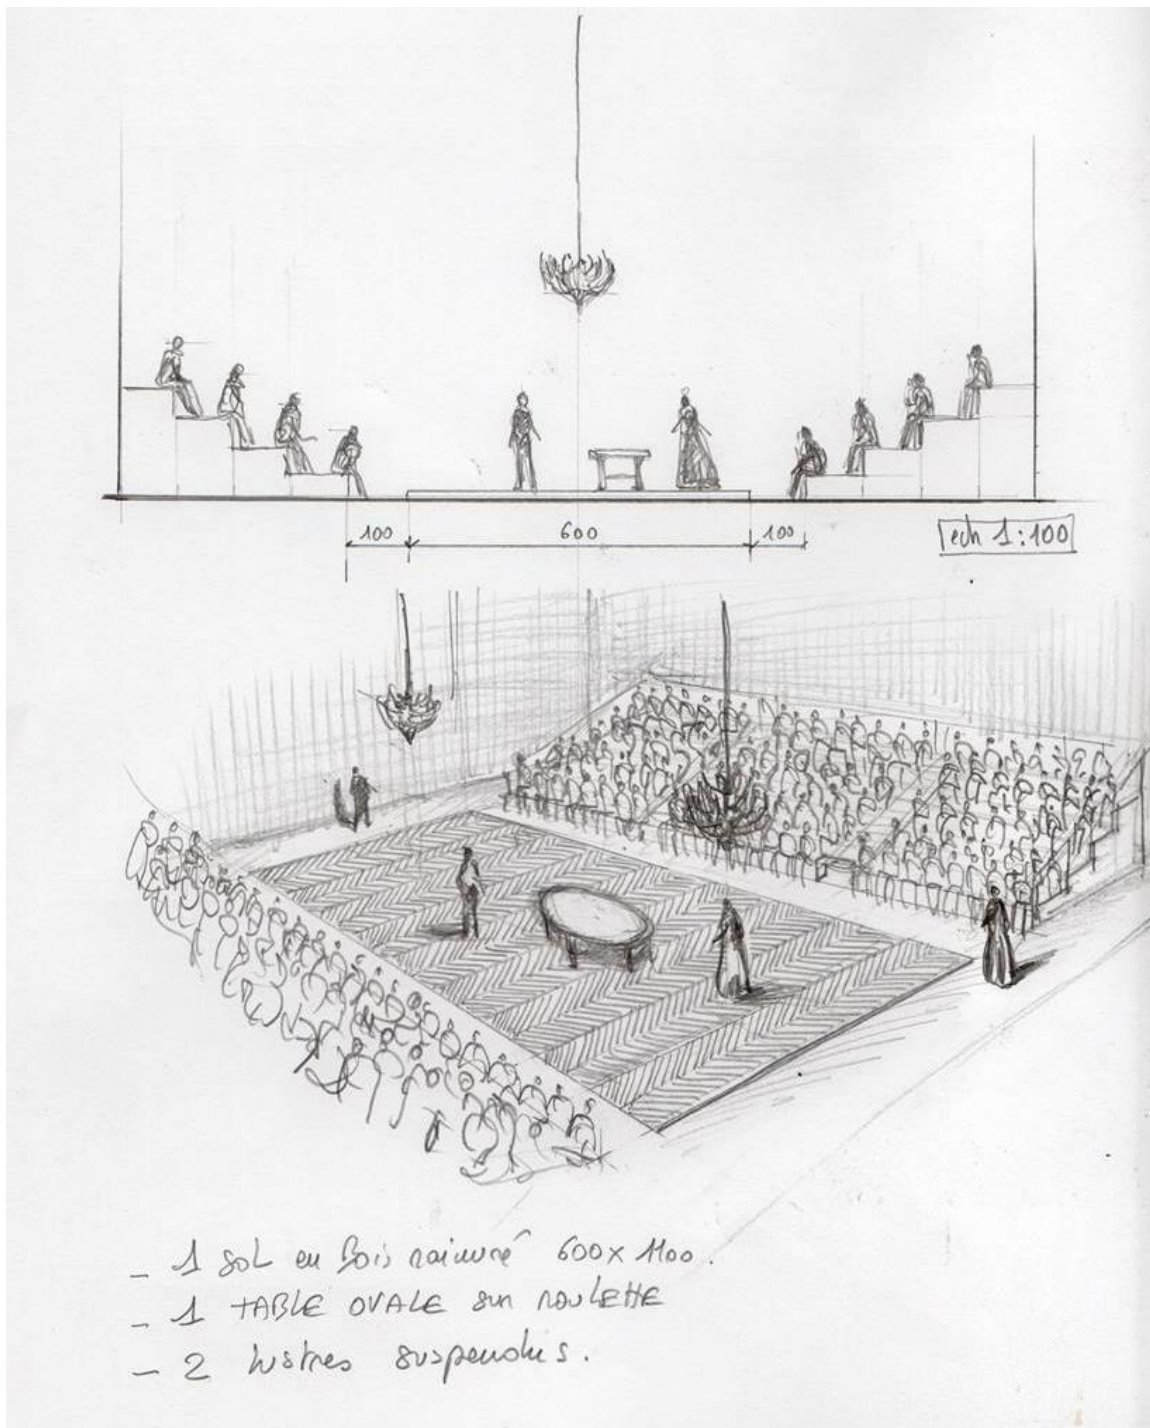 100 600 100
ech 1:100
_ 1 SOL en Bois rainuré 600 x 1100.
_ 1 TABLE OVALE sur ROULETTE
_ 2 lustres suspendus.